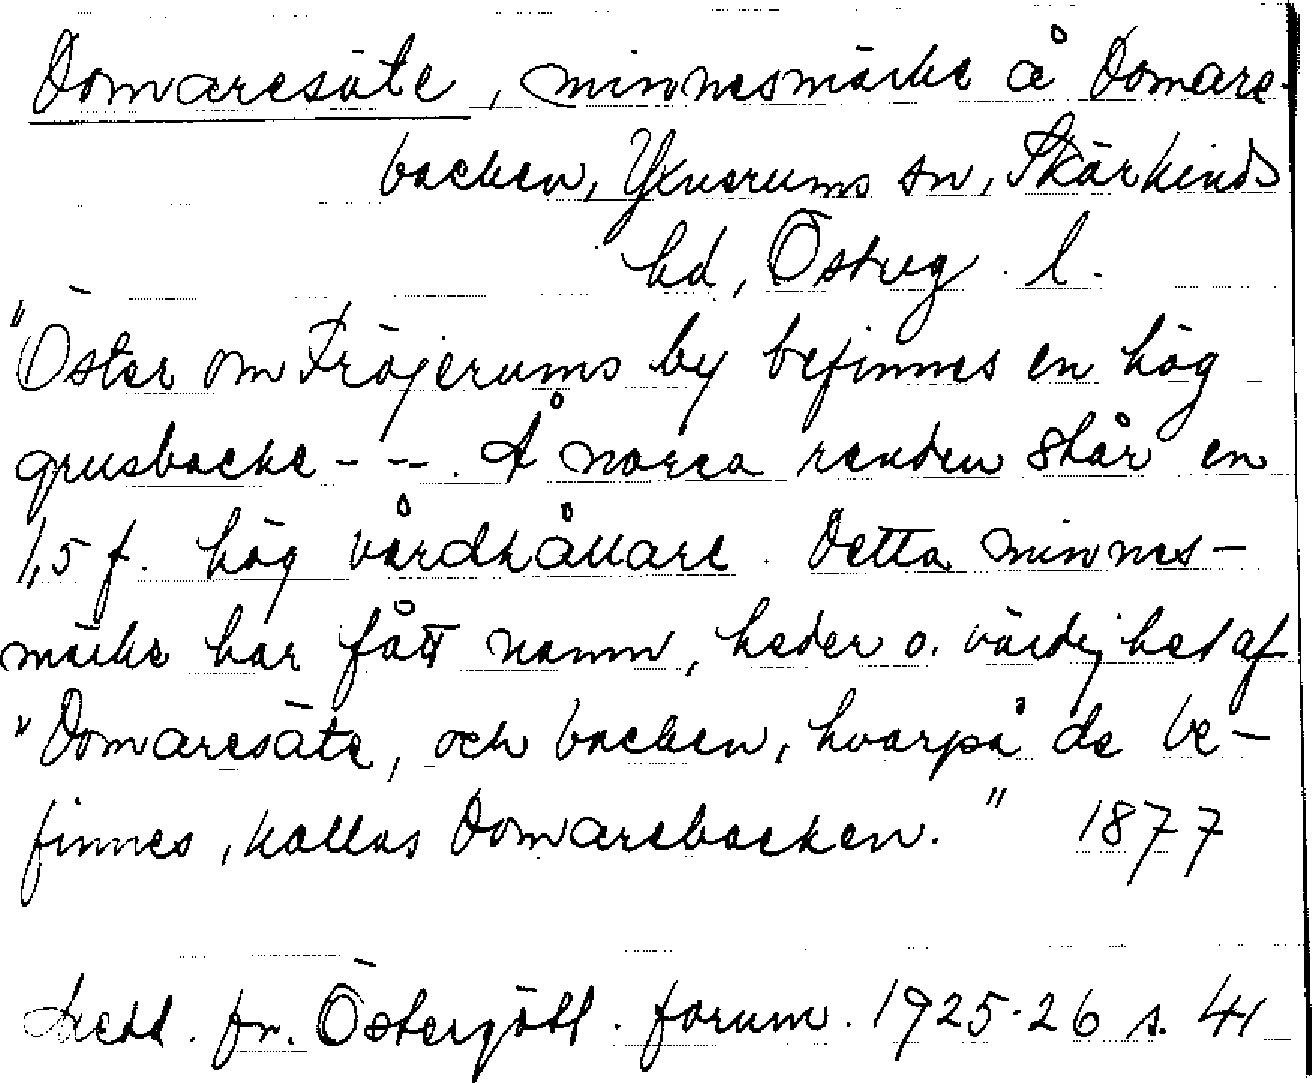 Domaresäte, minnesmärke å Domare-
backen, Yxnerums sn, Skärkinds
hd, Östug l.
"Öster om Fröjerums by befinnes en hög
grusbacke - - -. Å norra randen står en
1,5 f. hög vårdhållare. Detta minnes-
märke har fått namn, heder o. värdighet af
"Domaresäte, och backen, hvarpå de be-
finnes, kallas Domarebacken." 1877
Medd. fr. Östergötl. fornm. 1925-26 s. 41